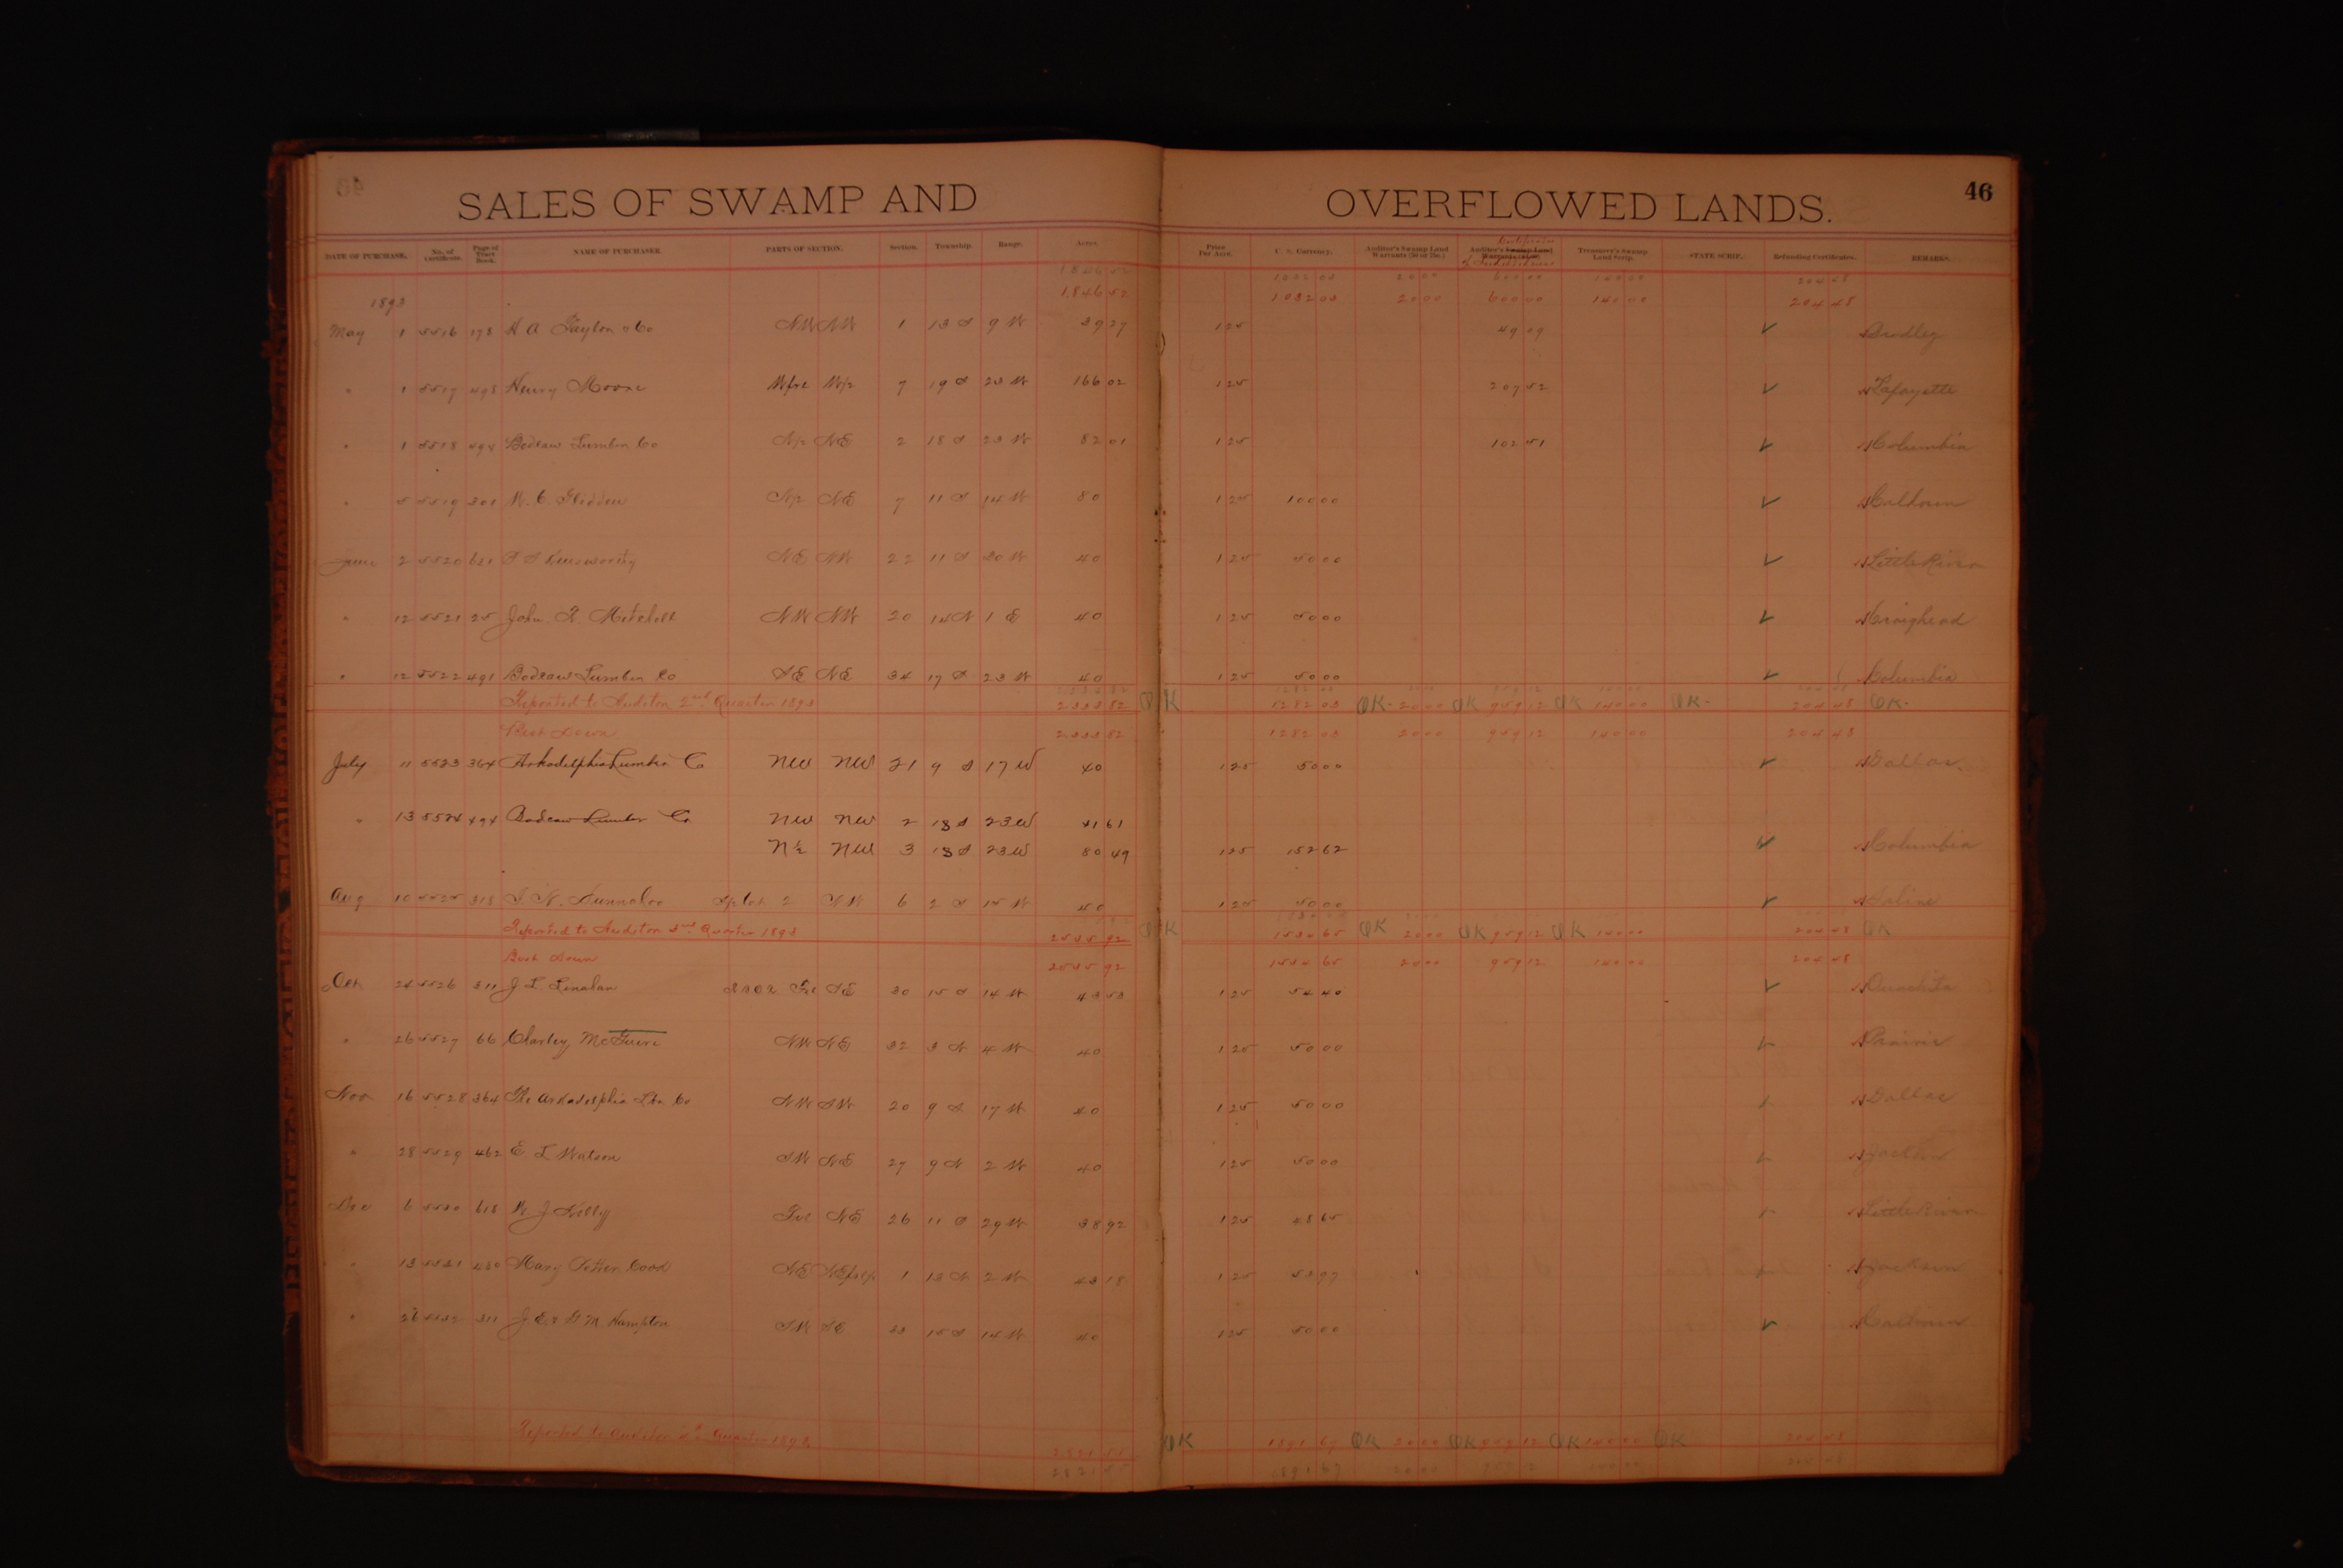 SALES OF SWAMP AND OVERFLOWED LANDS. 46
DATE OF PURCHASE. No. of Certificate. Page of Tract Book. NAME OF PURCHASER. PARTS OF SECTION. Section. Township. Range. Acres. Price Per Acre. U. S. Currency. Auditor's Swamp Land Warrants (50 or 75c.) Auditor's Swamp Land Treasurer's Swamp Land Scrip. STATE SCRIP. Refunding Certificates. REMARKS.
1846 52
1893 1846 52 1082 03 20 00 600 00 140 00 204 48
May 1 5516 178 H A Taylor & Co NW NW 1 13 S 9 W 39 27 1 25 49 09 Bradley
" 1 5517 495 Henry Moore W frl W/2 7 19 S 23 W 166 02 1 25 207 52 Lafayette
" 1 5518 494 Bodcaw Lumber Co N/2 NE 2 18 S 23 W 82 01 1 25 102 51 Columbia
" 5 5519 301 W. C Glidden N/2 NE 7 11 S 14 W 80 1 25 100 00 Calhoun
June 2 5520 621 NE NW 22 11 S 30 W 40 1 25 50 00 Little River
" 12 5521 25 John F. Mitchell NW NW 20 14 N 1 E 40 1 25 50 00 Craighead
" 12 5522 491 Bodcaw Lumber Co SE NE 34 17 S 23 W 40 1 25 50 00 Columbia
Reported to Auditor 2nd Quarter 1893 2333 82 OK 1282 03 OK 20 00 OK 959 12 OK 140 00 OK 204 48 OK
Brot Down 2333 82 1282 03 20 00 959 12 140 00 204 48
July 11 5523 364 Arkadelphia Lumber Co NW NW 21 9 S 17 W 40 1 25 50 00 Dallas
" 13 5524 494 Bodcaw Lumber Co NW NW 2 18 S 23 W 41 61
N½ NW 3 18 S 23 W 80 49 1 25 152 62 Columbia
Aug 10 5525 318 NW 6 2 S 15 W 40 1 25 50 00 Saline
Reported to Auditor 3rd Quarter 1893 2535 92 OK 1534 65 OK 20 00 OK 959 12 OK 140 00 204 48 OK
Brot Down 2535 92 1534 65 20 00 959 12 140 00 204 48
Oct 24 5526 311 J. L. Linahan Frl SE 30 15 S 14 W 43 53 1 25 54 40 Ouachita
" 26 5527 66 Charley McGuire NW NE 32 3 N 4 W 40 1 25 50 00 Prairie
Nov 16 5528 364 The Arkadelphia Lbr Co NW SW 20 9 S 17 W 40 1 25 50 00 Dallas
" 28 5529 462 E L Watson SW NE 27 9 N 2 W 40 1 25 50 00 Jackson
Dec 6 5530 618 W. J Kelly Frl NE 26 11 S 29 W 38 92 1 25 48 65 Little River
" 13 5531 480 Mary Cook NE NE 1 13 N 2 W 43 18 1 25 53 97 Jackson
" 26 5532 311 J. E & M. Hampton SW SE 33 15 S 14 W 40 1 25 50 00 Calhoun
Reported to Auditor 4th Quarter 1893 2821 55 OK 1891 67 OK 20 00 OK 959 12 OK 140 00 OK 204 48
2821 55 1891 67 20 00 959 12 140 00 204 48